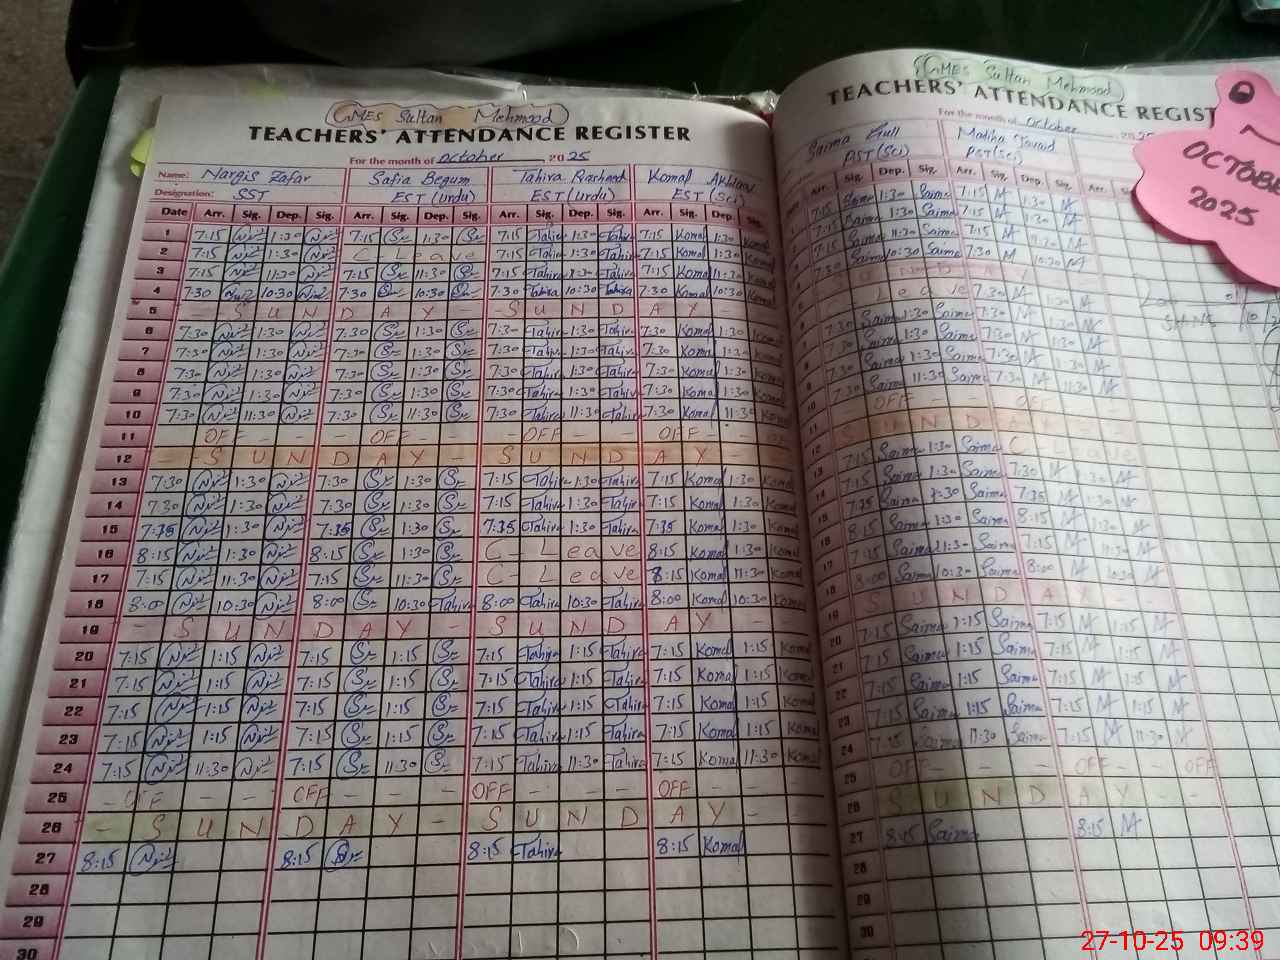 GMES Sultan Mehmood
TEACHERS' ATTENDANCE REGISTER
For the month of October 2025
Name: Nargis Zafar Safia Begum Tahira Rasheed Komal Akhtar
Designation: SST EST (Urdu) EST (Urdu) EST (Sci)
Date Arr. Sig. Dep. Sig. Arr. Sig. Dep. Sig. Arr. Sig. Dep. Sig. Arr. Sig. Dep. Sig.
1 7:15 1:30 7:15 1:30 7:15 Tahira 1:30 Tahira 7:15 Komal 1:30 Komal
2 7:15 1:30 C Leave 7:15 Tahira 1:30 Tahira 7:15 Komal 1:30 Komal
3 7:15 11:30 7:15 11:30 7:15 Tahira Tahira 7:15 Komal 11:30 Komal
4 7:30 10:30 7:30 10:30 7:30 Tahira 10:30 Tahira 7:30 Komal 10:30 Komal
5 - S U N D A Y - S U N D A Y -
6 7:30 1:30 7:30 1:30 7:30 Tahira 1:30 Tahira 7:30 Komal 1:30 Komal
7 7:30 1:30 7:30 1:30 7:30 Tahira 1:30 Tahira 7:30 Komal 1:30 Komal
8 7:30 1:30 7:30 1:30 7:30 Tahira 1:30 Tahira 7:30 Komal 1:30 Komal
9 7:30 1:30 7:30 1:30 7:30 Tahira 1:30 Tahira 7:30 Komal 1:30 Komal
10 7:30 11:30 7:30 11:30 7:30 Tahira 11:30 Tahira 7:30 Komal 11:30 Komal
11 OFF - - - OFF - - - OFF - - OFF - - OFF
12 - S U N D A Y - S U N D A Y -
13 7:30 1:30 7:30 1:30 7:15 Tahira 1:30 Tahira 7:15 Komal 1:30 Komal
14 7:30 1:30 7:30 1:30 7:15 Tahira 1:30 Tahira 7:15 Komal 1:30 Komal
15 7:35 1:30 7:35 1:30 7:35 Tahira 1:30 Tahira 7:35 Komal 1:30 Komal
16 8:15 1:30 8:15 1:30 C - Leave 8:15 Komal 1:30 Komal
17 7:15 11:30 7:15 11:30 C - Leave 8:15 Komal 11:30 Komal
18 8:00 10:30 8:00 10:30 Tahira 8:00 Tahira 10:30 Tahira 8:00 Komal 10:30 Komal
19 - S U N D A Y - S U N D A Y -
20 7:15 1:15 7:15 1:15 7:15 Tahira 1:15 Tahira 7:15 Komal 1:15 Komal
21 7:15 1:15 7:15 1:15 7:15 Tahira 1:15 Tahira 7:15 Komal 1:15 Komal
22 7:15 1:15 7:15 1:15 7:15 Tahira 1:15 Tahira 7:15 Komal 1:15 Komal
23 7:15 1:15 7:15 1:15 7:15 Tahira 1:15 Tahira 7:15 Komal 1:15 Komal
24 7:15 11:30 7:15 11:30 7:15 Tahira 11:30 Tahira 7:15 Komal 11:30 Komal
25 - OFF - - OFF - - - OFF - - - OFF - - -
26 - S U N D A Y - S U N D A Y -
27 8:15 8:15 8:15 Tahira 8:15 Komal
28
29
30
GMES Sultan Mehmood
TEACHERS' ATTENDANCE REGIST
For the month of October 2025
Saima Gull Madiha Javaid
PST (Sci) PST (Sci)
Arr. Sig. Dep. Sig. Arr. Sig. Dep. Sig.
7:15 Saima 1:30 Saima 7:15 M 1:30 M
7:15 Saima 1:30 Saima 7:15 M 1:30 M
7:15 Saima 11:30 Saima 7:15 M 11:30 M
7:30 Saima 10:30 Saima 7:30 M 10:30 M
S U N D A Y
Leave 7:30 M 1:30 M
7:30 Saima 1:30 Saima 7:30 M 1:30 M
7:30 Saima 1:30 Saima 7:30 M 1:30 M
Saima 1:30 Saima 7:30 M 1:30 M
7:30 Saima 11:30 Saima 7:30 M 11:30 M
10 OFF - - OFF -
11 S U N D A Y
12 7:15 Saima 1:30 Saima C Leave
13 7:15 Saima 1:30 Saima 7:30 M 1:30 M
14 7:35 Saima 1:30 Saima 7:35 M 1:30 M
15 8:15 Saima 1:30 Saima 8:15 M M
16 7:15 Saima 11:30 Saima 7:15 M 11:30 M
17 8:00 Saima 10:30 Saima 8:00 M 10:30 M
18 S U N D A Y -
19 7:15 Saima 1:15 Saima 7:15 M 1:15 M
20 7:15 Saima 1:15 Saima 7:15 M 1:15 M
21 7:15 Saima 1:15 Saima 7:15 M 1:15 M
22 7:15 Saima 1:15 Saima 7:15 M 1:15 M
23 7:15 Saima 11:30 Saima 7:15 M 11:30 M
24 OFF - - - OFF - - OFF
25 S U N D A Y -
26 8:15 Saima 8:15 M
27
28
29
30
OCTOBE
2025
27-10-25 09:39